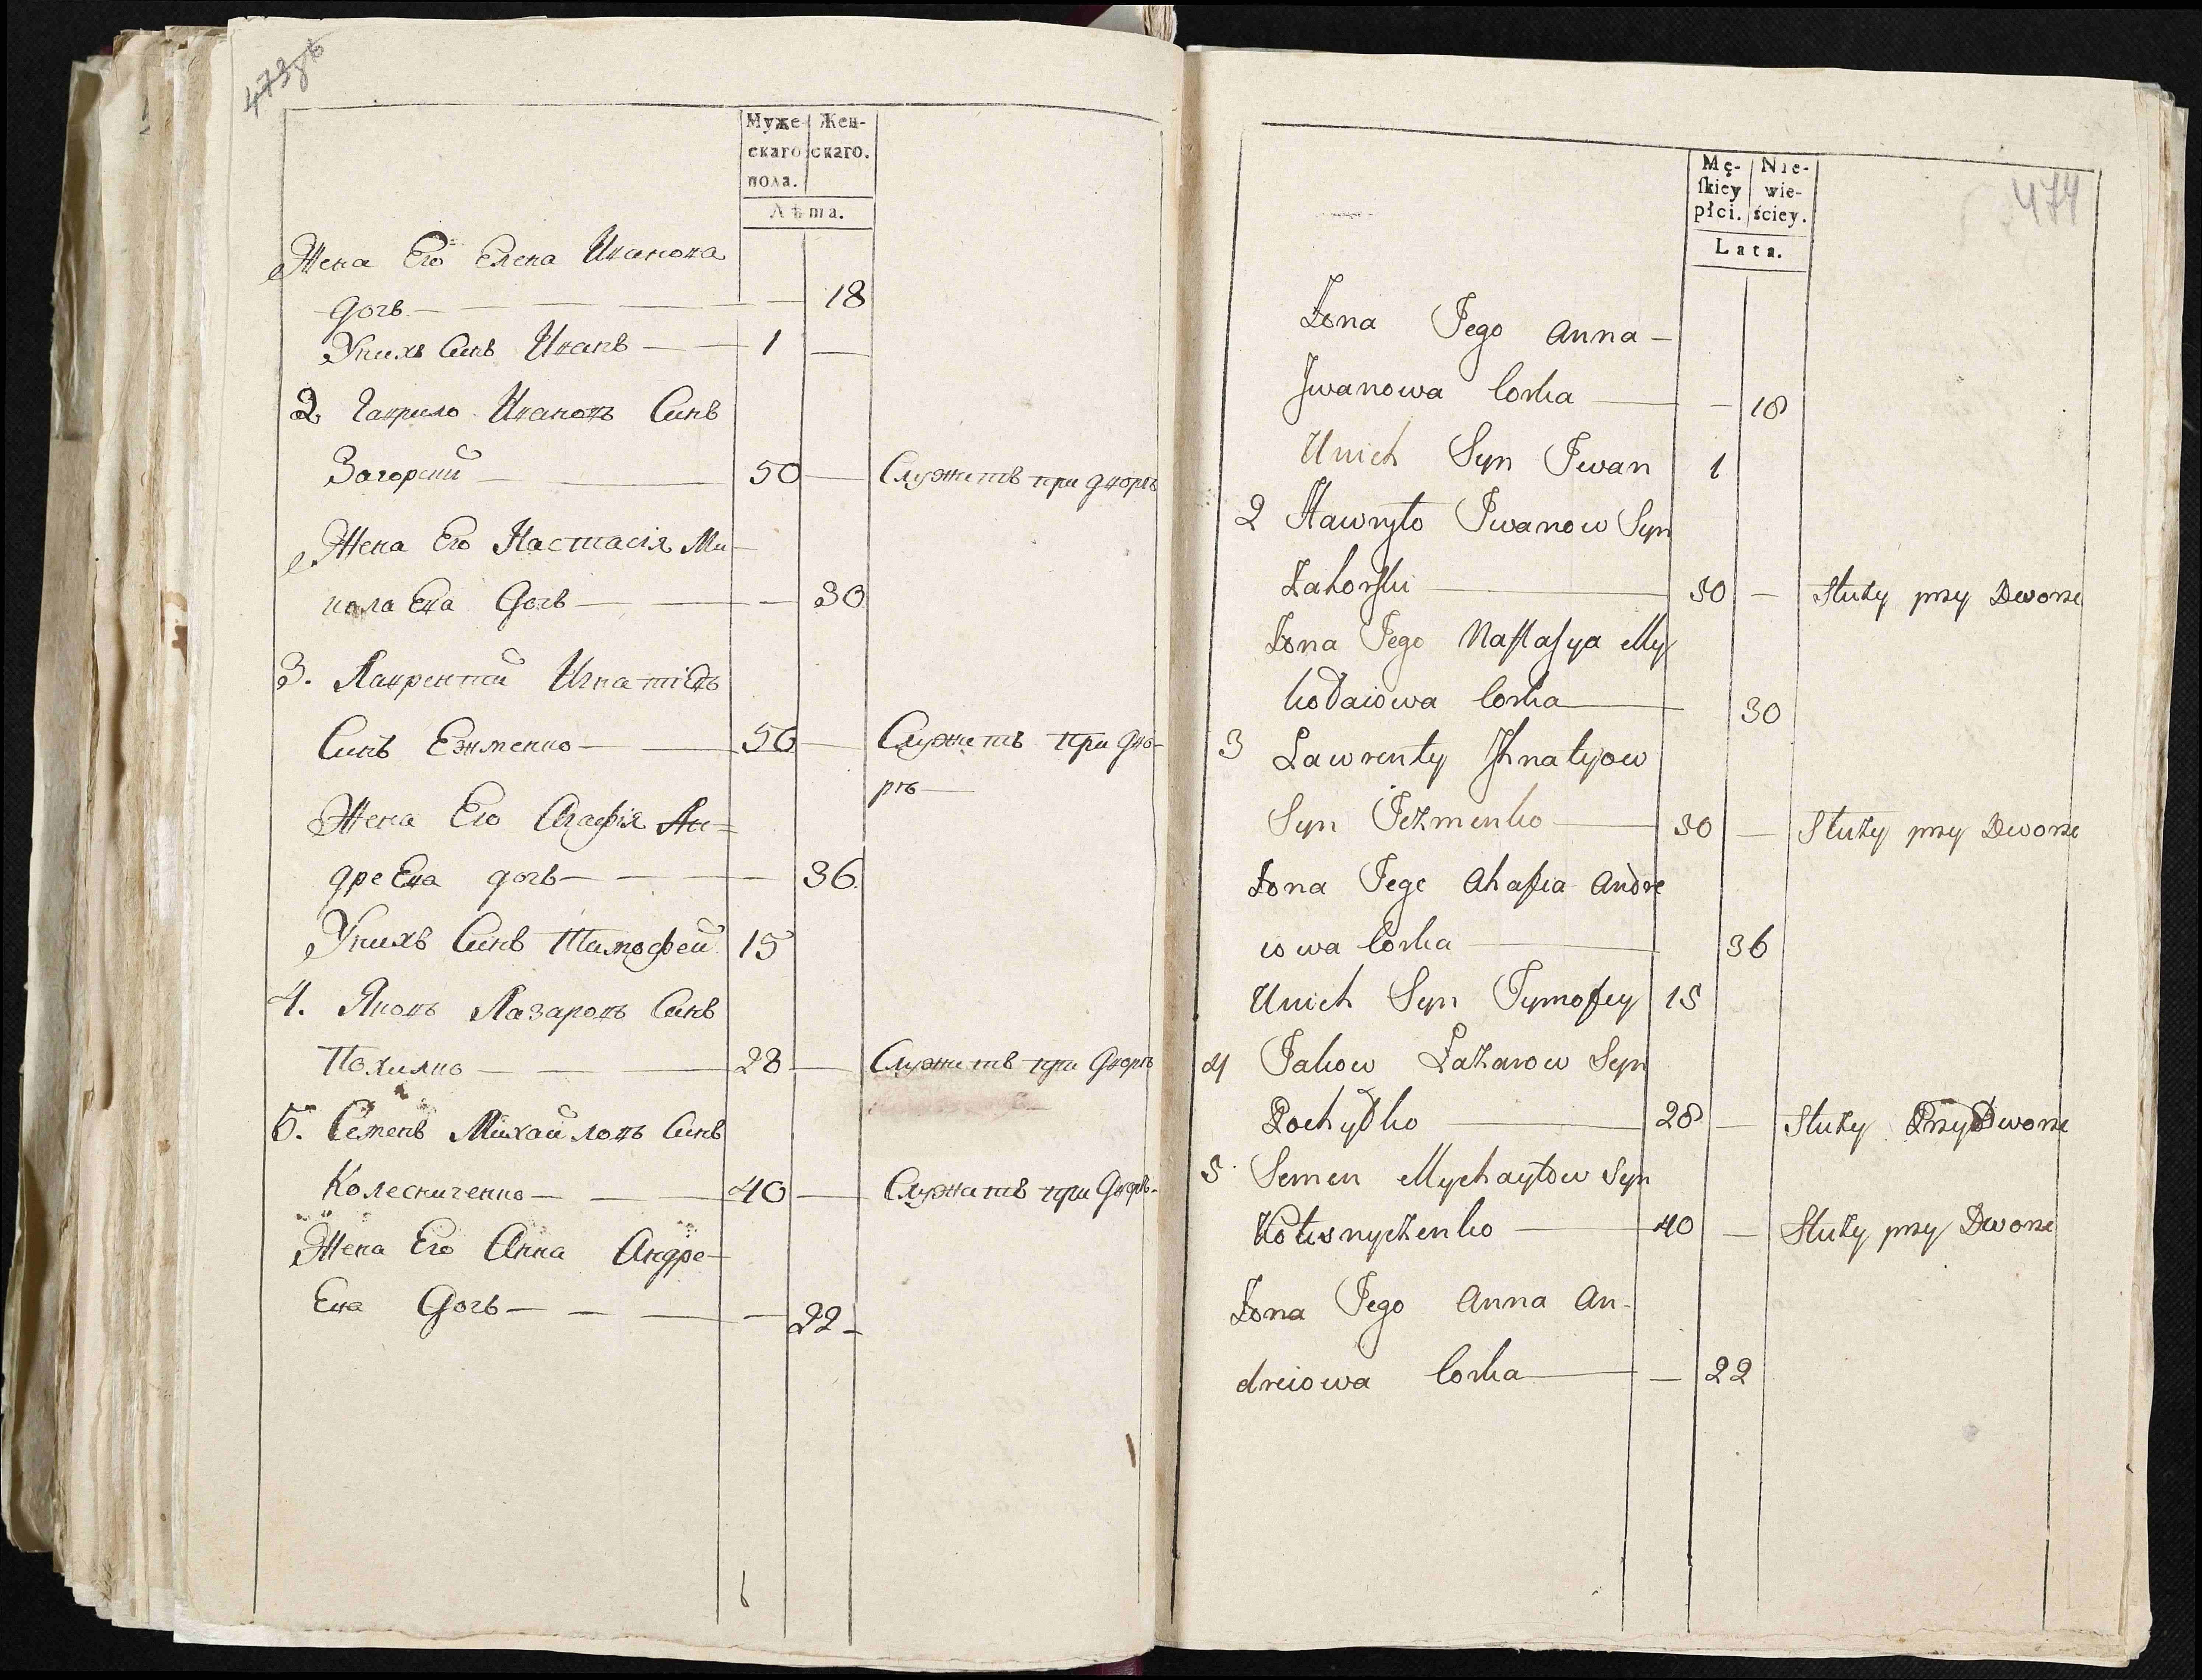 473зв
Муже- Жен-
скаго скаго.
пола.
Лѣта.
Жена Его Елена Иванова
дочь — — 18
Унихъ Синъ Иванъ — 1 —
2 Гаврило Ивановъ Синъ
Загорский — 50 — Служитъ при дворѣ
Жена Его Настасія Ми-
колаЕва Дочь — — 30
3. Лаврентий ИгнатіЕвъ
Синъ Ежменко — 50 — Служитъ при дво-
рѣ —
Жена Его Агафія Ан=
дреЕва дочь — — 36
Унихъ Синъ Тимофей 15
4. Яковъ Лазаровъ Синъ
Похилко — 28 — Служитъ при Дворѣ
5. Семенъ Михайловъ Синъ
Колесниченко — 40 — Служитъ при Дворѣ
Жена Его Анна Андре-
Ева Дочь — — 22
474
Mę- Nie-
ſkiey wie-
płci. ściey.
Lata.
Żona Jego Anna —
Jwanowa Corka — — 18
Unich Syn Jwan 1
2 Hawryło Jwanow Syn
Zahorſki — 50 — Służy przy Dworze
Żona Jego Naſtaſya My
kołaiowa Corka — 30
3 Lawrenty Jhnatyow
Syn Jeżmenko — 50 — Służy przy Dworze
Żona Jego Ahafia Andre
iowa Corka — 36
Unich Syn Tymofey 15
4 Jakow Łazarow Syn
Pochyłko — 28 — Służy Przy Dworze
5 Semen Mychayłow Syn
Kołesnyczenko — 40 — Służy przy Dworze
Żona Jego Anna An-
dreiowa Corka — — 22